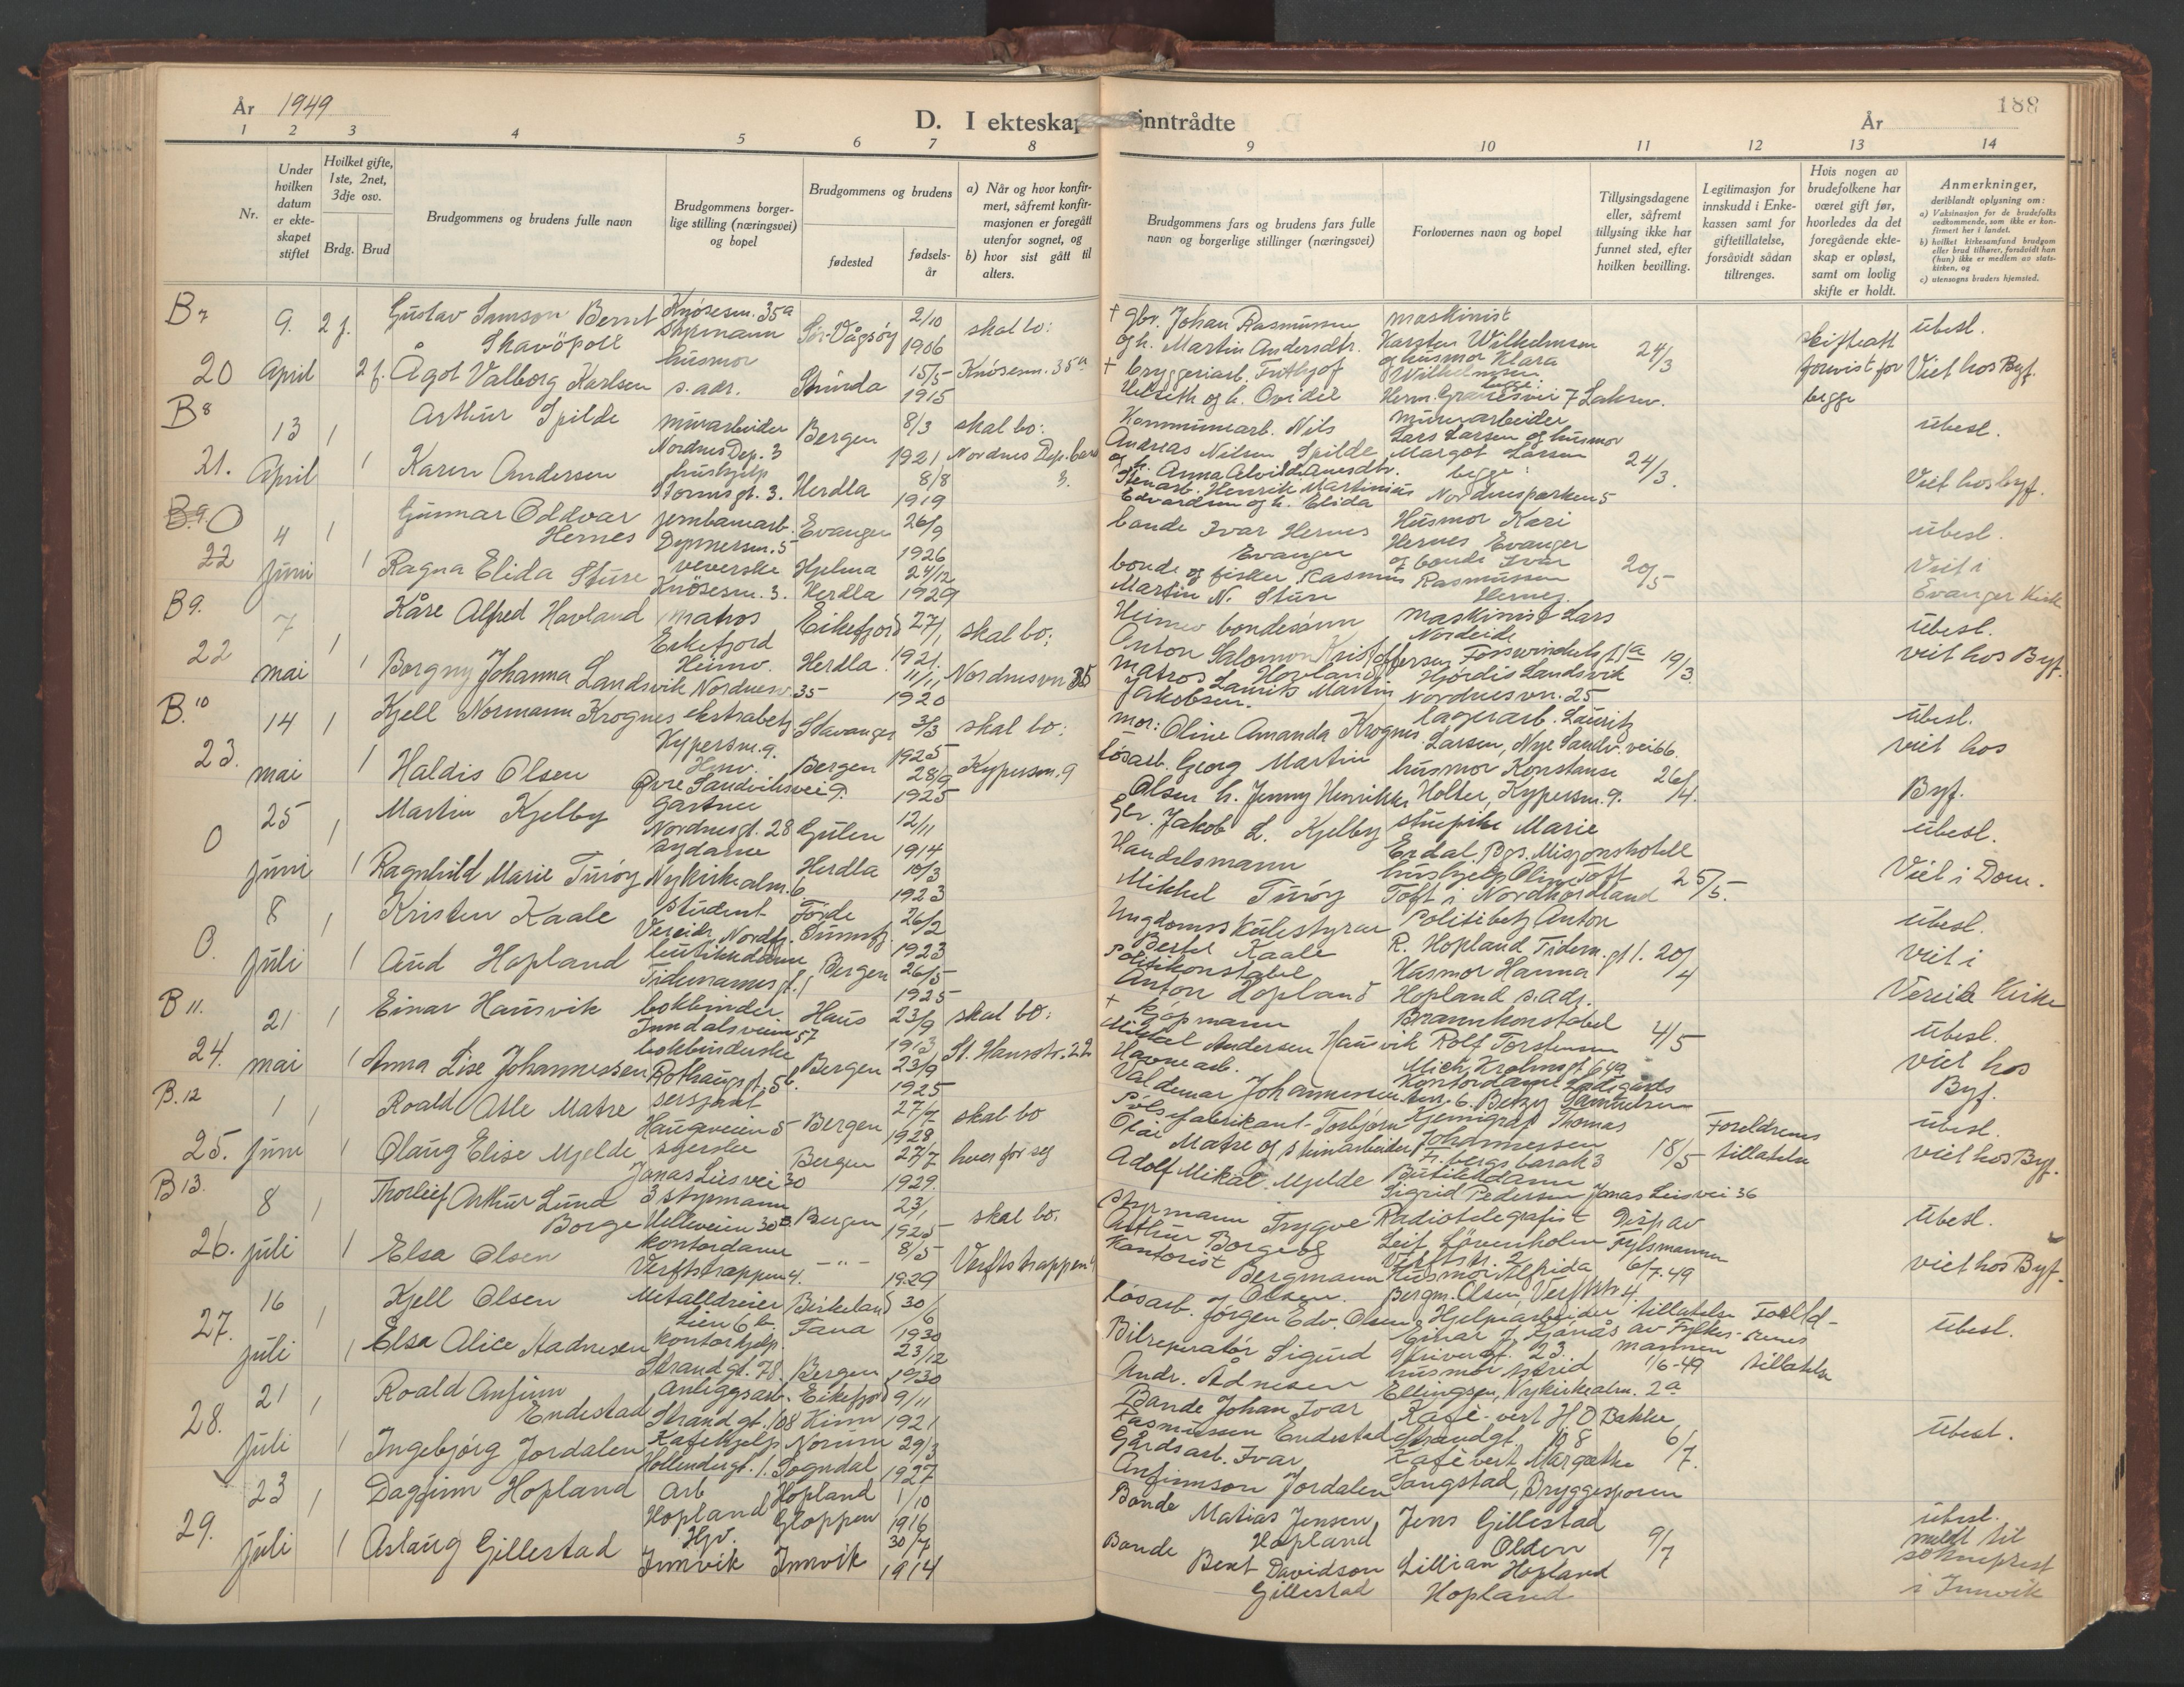 År 1949
D. I ekteskap inntrådte
188
År
1 2 3 4 5 6 7 8 9 10 11 12 13 14
Nr.
Under hvilken datum er ekteskapet stiftet
Hvilket gifte, 1ste, 2net, 3dje osv.
Brdg. Brud
Brudgommens og brudens fulle navn
Brudgommens borgerlige stilling (næringsvei) og bopel
Brudgommens og brudens
fødested
fødselsår
a) Når og hvor konfirmert, såfremt konfirmasjonen er foregått utenfor sognet, og
b) hvor sist gått til alters.
Brudgommens fars og brudens fars fulle navn og borgerlige stillinger (næringsvei)
Forlovernes navn og bopel
Tillysingsdagene eller, såfremt tillysing ikke har funnet sted, efter hvilken bevilling.
Legitimasjon for innskudd i Enkekassen samt for giftetillatelse, forsåvidt sådan tiltrenges.
Hvis nogen av brudefolkene har været gift før, hvorledes da det foregående ekteskap er opløst, samt om lovlig skifte er holdt.
Anmerkninger, deriblandt oplysning om:
a) Vaksinasjon for de brudefolks vedkommende, som ikke er konfirmert her i landet.
b) hvilket kirkesamfund brudgom eller brud tilhører, forsåvidt han (hun) ikke er medlem av statskirken, og
c) utensogns bruders hjemsted.
B 7
20
9. April
2 f. 2 f.
Gustav Samson Bernt Skavöpoll
Knösesm. 35a Styrmann
Sör-Vågsöy
2/10 1906
skal bo:
† gbr. Johan Rasmussen og h. Martin Andersdtr.
maskinist Karsten Wilhelmsen og husmor Klara Wilhelmsen
24/3
skifteatt forevist for begge
ubesl.
Ågot Valborg Karlsen
husmor s. adr.
Strinda
15/5 1915
Knösesm. 35a
† bryggeriarb. Frithjof
begge: Herm. Griegsvei 7
Viet hos Byf.
B 8
21.
13 April
1 1
Arthur Spilde
murarbeider Nordnes Dep. 3
Bergen
8/3 1921
skal bo: Nordnes Dep. 3.
Kommunearb. Nils Andreas Nilsen Spilde og h. Anna Alvilde
murerarbeider Lars Larsen og husmor Margot Larsen begge: Nordnesparken 5
24/3.
ubesl.
Karen Andersen
hushjelp Stormsgt. 3.
Herdla
8/8 1919
Stenarb. Henrik Martinius Edvardsen og h. Elida
Viet hos byf.
B. 9. O
22
4 Juni
1 1
Gunnar Oddvar Hernes
jernbanearb. Dypnersm. 5
Evanger
26/9 1926
bonde Ivar Hernes Evanger
Husmor Kari Hernes Evanger og bonde Ivar Rasmussen Hernes
20/5
ubesl.
Ragna Elida Sture
veverske Knösesm. 3.
Hjelma Herdla
24/12 1929
bonde og fisker Rasmus Martin N. Sture
Viet i Evanger Kirke
B 9.
22
7 mai
1 1
Kåre Alfred Hovland
matros Eikefjord
Eikefjord
27/1 1921.
skal bo:
Anton Salomon Kristoffersen Hovland
maskinist Lars Nordeide
19/3.
ubesl.
Borgny Johanna Landsvik
Heimv. Nordnesv. 35
Herdla
11/11 1920
Nordnesvn 35
matros Laurits Martin Jakobsen.
Hjördis Landsvik Nordnesvn. 25
viet hos Byf.
B. 10
23.
14 mai
1 1
Kjell Normann Krognes
ekstrabetj. Kypersm. 9.
Stavanger
3/3 1925
skal bo:
mor: Oline Amanda Krognes
lagerarb. Lauritz Larsen, Nye Sandv. vei 66.
26/4.
ubesl.
Haldis Olsen
Hmv. Övre Sandviksvei 9.
Bergen
28/9 1925
Kypersm. 9
lösarb. Georg Martin Olsen h. Jenny Henrikke
husmor Konstanse Holter, Kypersm. 9.
viet hos Byf.
O
25 Juni
1 1
Martin Kjelby
gartner Nordnesgt. 28
Gulen
12/11 1914
Gbr. Jakob L. Kjelby
stuepike Marie Erdal, Bgs. Misjonshotell
25/5.
ubesl.
Ragnhild Marie Turöy
sydame Nykirkealm. 6
Herdla
10/3 1923
Handelsmann Mikkel Turöy
hushjelp Oline Toft Toft i Nordhordland
Viet i Dom.
O.
8 Juli
1 1
Kristen Kaale
student
Förde Sunnfj.
26/2 1923
Ungdomsskulestyrar Bertel Kaale
Politibetj. Anton R. Hopland Tidem. gt 1.
20/4
ubesl.
Aud Hopland
butikkdame Tidemannsgt. 1
Bergen
26/5 1925
Politikonstabel Anton Hopland
Husmor Hanna Hopland s. adr.
viet i Vereide Kirke
B 11.
24.
21 mai
1 1
Einar Hausvik
bokbinder Inndalsveien 57
Haus
23/9 1913
skal bo:
† Kopmann Mikal Andersen Hausvik
Brannkonstabel Rolf Torstensen Mich. Krohnsgt 69a
4/5
ubesl.
Anna Lise Johannessen
bokbinderske Rothaugsgt. 5 b.
Bergen
23/9 1925
St. Hansstr. 22
Havnearb. Valdemar Johannessen
Kontordame Betzy Samuelsen
viet hos Byf.
B. 12
25.
1 Juni
1 1
Roald Atle Matre
sersjant Haugeveien 5
Bergen
27/7 1928
skal bo
Pölsefabrikant Torbjörn Olai Matre
Thomas Johannessen
18/5
Foreldrenes tillatelse
ubesl.
Olaug Elise Mjelde
syerske Jonas Liesvei 30
Bergen
27/7 1929.
hver for seg
og skinnarbeider Adolf Mikal Mjelde
Butikkdame Sigrid Pedersen Jonas Liesvei 36
viet hos Byf.
B 13.
26.
8 juli
1 1
Thorleif Arthur Lund Borge
3 styrmann Helleveien 30 B.
Bergen
23/1 1925
skal bo:
Styrmann Trygve Arthur Borge og
Radiotelegrafist Leif Lövenholm Verftstr. 2
Disp av Fylkesmannen 6/7.49
ubesl.
Elsa Olsen
kontordame Verftstrappen 4.
— " —
8/5 1929
Verftstrappen 4
Kontorist Bergmann Olsen.
Husmor Alfrida Bergm. Olsen, Verftstr 4.
viet hos Byf.
27.
16 juli
1 1
Kjell Olsen
Metalldreier Lien 6 b.
Birkeland Fana
30/6 1930
Lösarb. Jörgen Edv. Olsen
Hjelpearbeider Einar Skivergt. 23.
tillatelse av Fylkesmannen 1/6-49
Foreldrenes tillatelse
ubesl.
Elsa Alice Aadnesen
kontorhjelp. Strandgt. 78.
Bergen
23/12 1930
Bilreparatör Sigurd Andr. Ådnesen
husmor Astrid Ellingsen, Nykirkealm. 2a
28.
21 Juli
1 1
Roald Anfinn Endestad
Anleggsarb. Strandgt. 108
Eikefjord Kinn
9/11 1921
Bonde Johan Ivar Rasmussen Endestad
Kafé-vert H. O Bakke, Strandgt. 108
6/7.
ubesl.
Ingebjörg Jordalen
Kafehjelp Hollendergt. 1.
Norum Sogndal
29/3 1927
Gårdsarb. Ivar Anfinnson Jordalen
Kafévert Margrethe Sangstad, Bryggesporen
29.
23 juli
1 1
Dagfinn Hopland
Arb Hopland
Hopland Gloppen
1/10 1916
Bonde Matias Jensen Hopland
Jens Gillestad Olden
9/7
ubesl. meldt til sokneprest i Innvik
Aslaug Gillestad
Hjv. Innvik
Innvik
30/7 1914
Bonde Bent Davidson Gillestad
Lillian Hopland Hopland